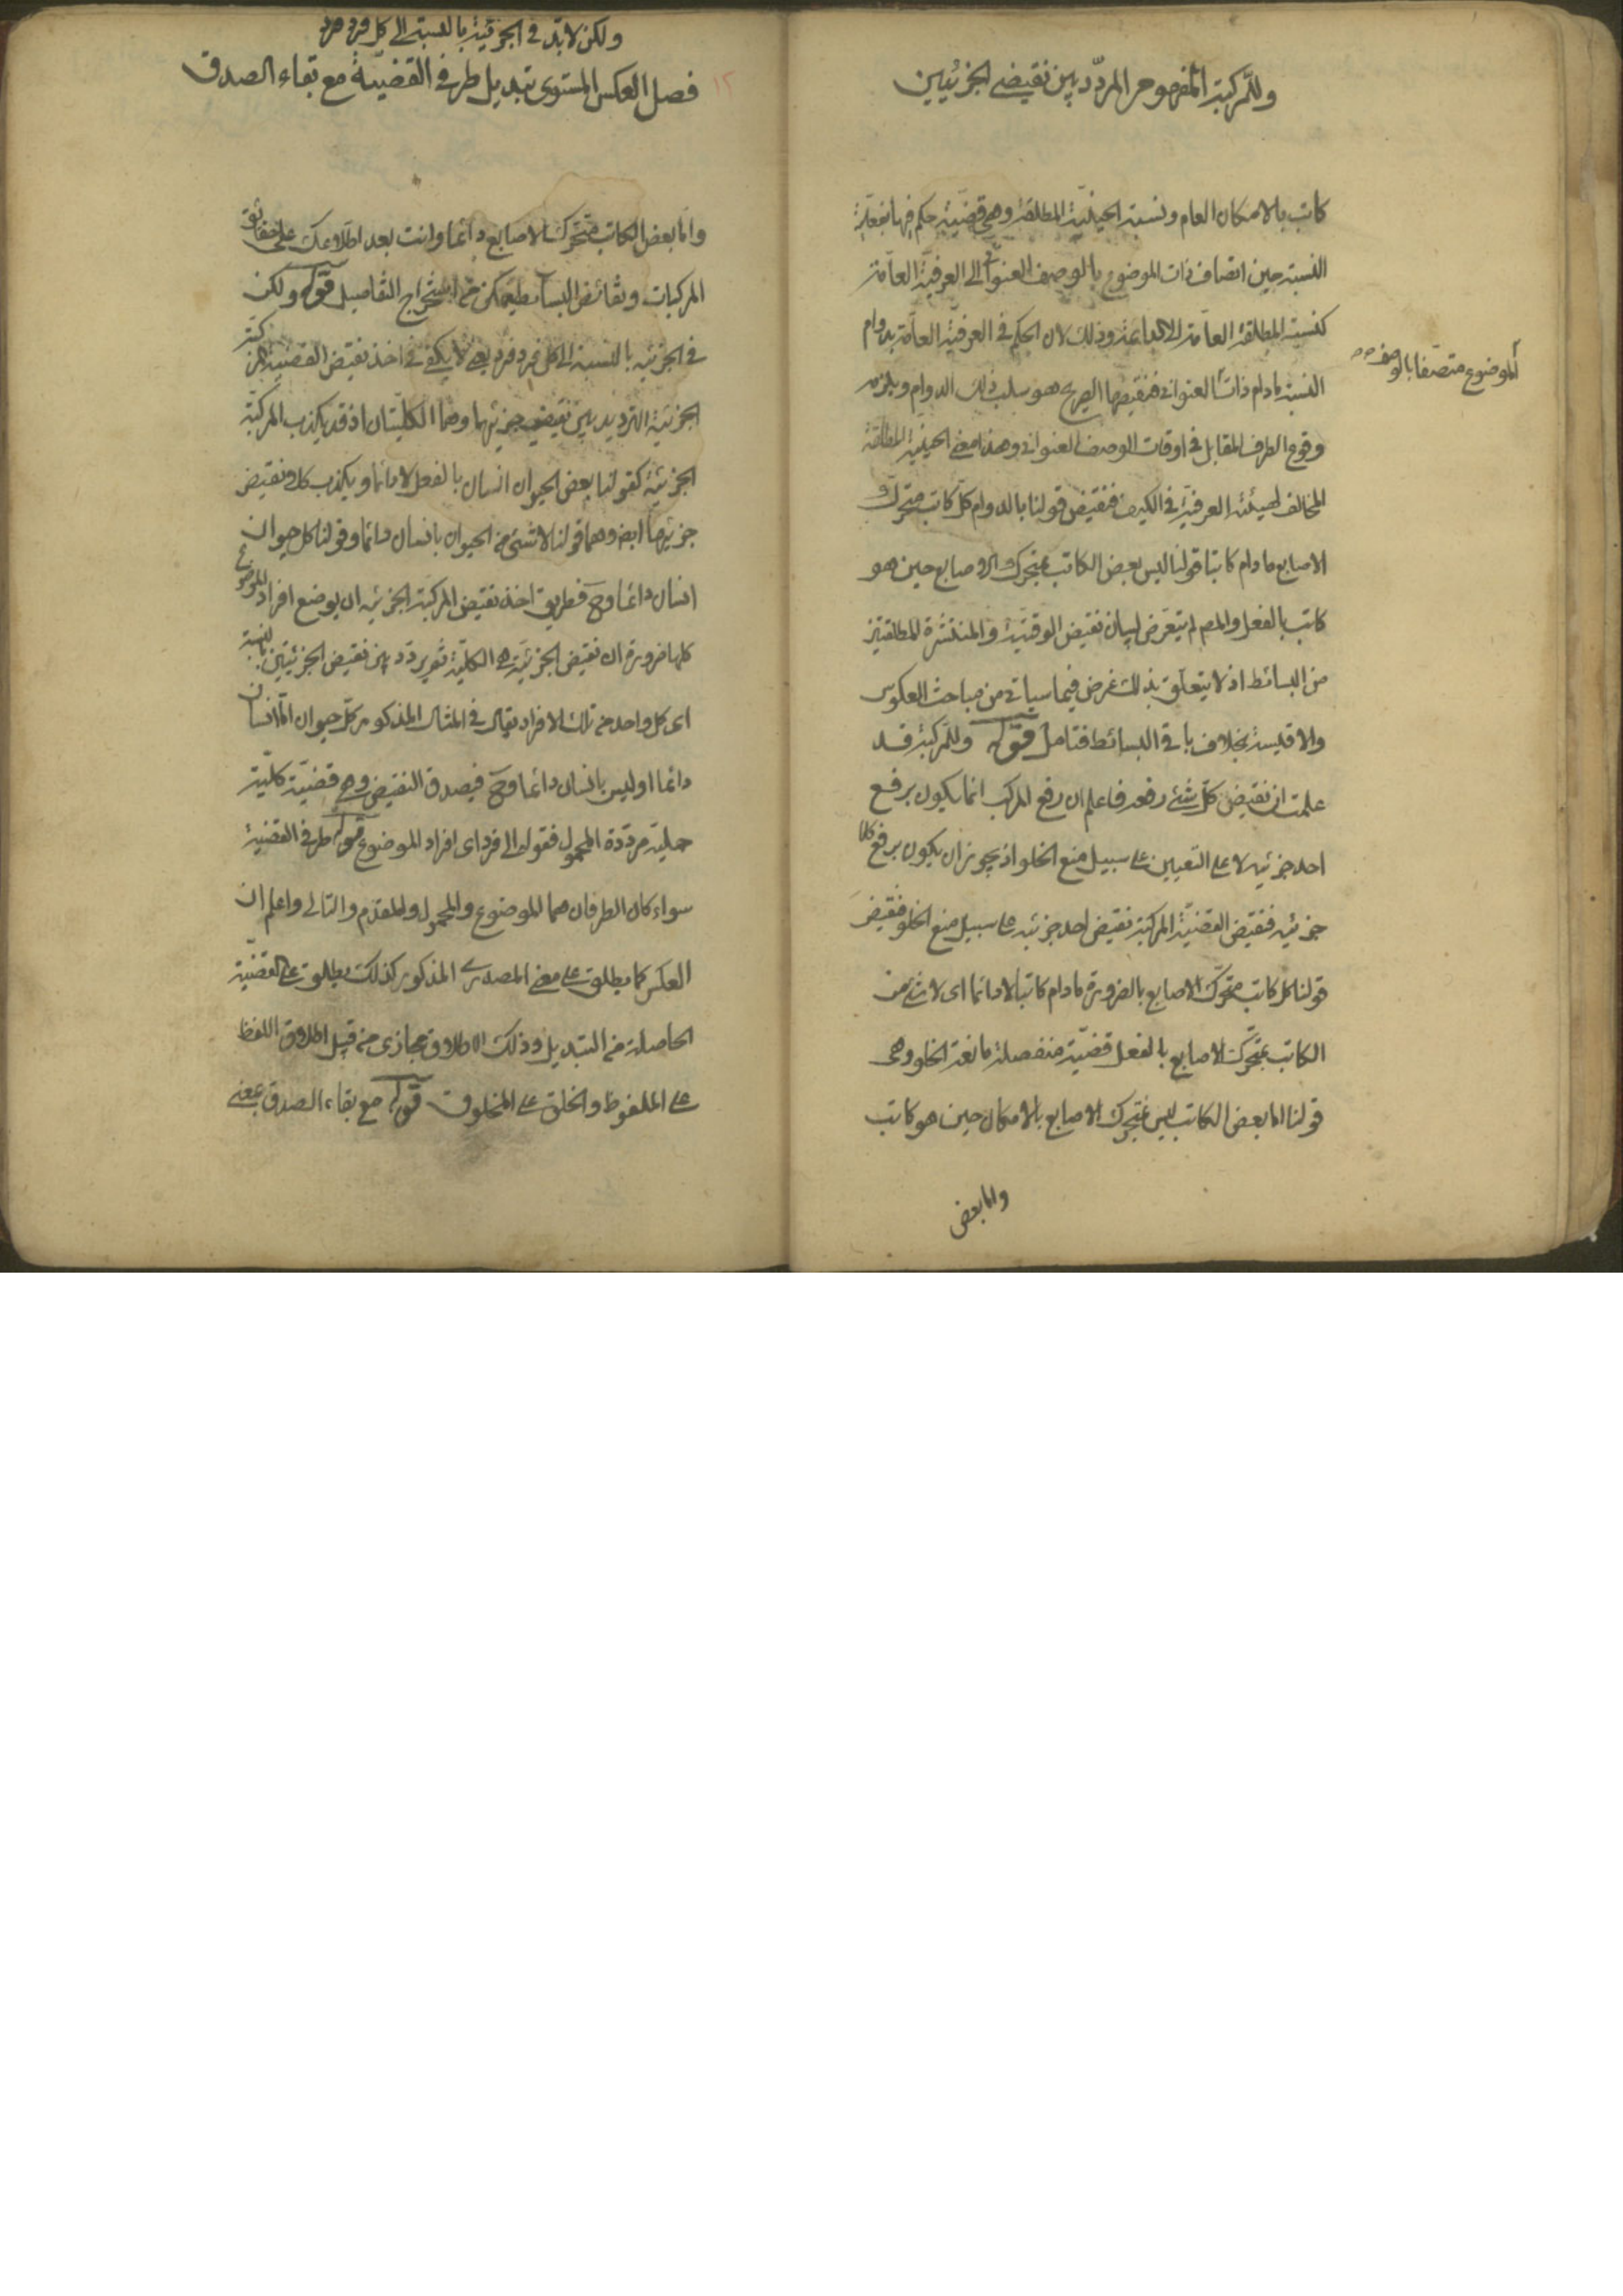 وللمركبة المفهوم المردّد بين نقيضى الجزئيين
كاتب بالامكان العام ونسبة الحينيّة المطلقة وهى قضيّة حكم فيها بفعلية
النسبة حين اتصاف ذات الموضوع بالوصف العنوانى الى العرفيّة العامّة
كنسبة المطلقة العامّة الى الدائمة وذلك لان الحكم فى العرفيّة العامّة بدوام
النسبة مادام ذات العنوانى فنقيضها الصريح هو سلب ذلك الدوام ويلزمه
الموضوع متصفا بالوصف
وقوع الطرف المقابل فى اوقات الوصف العنوانى وهذا معنى الحينية المطلقة
المخالف لهيئة العرفيّة فى الكيف فنقيض قولنا بالدوام كلّ كاتب متحرّك
الاصابع مادام كاتبا قولنا ليس بعض الكاتب بمتحرك الاصابع حين هو
كاتب بالفعل والمص لم يتعرّض لبيان نقيض الوقتيّة والمنتشرة المطلقتين
من البسائط اذ لا يتعلّق بذلك غرض فيما سياتى من مباحث العكوس
والاقيسة بخلاف باقى البسائط فتامل قوله وللمركبة قد
علمت ان نقيض كلّ شئ رفعه فاعلم ان رفع المركب انما يكون برفع
احد جزئيه لا على التعيين على سبيل منع الخلو اذ يجوز ان يكون برفع كلا
جزئيه فنقيض القضيّة المركبة نقيض احد جزئيه على سبيل منع الخلو فنقيض
قولنا كل كاتب متحرّك الاصابع بالضرورة مادام كاتبا لا دائما اى لا شئ من
الكاتب بمتحرّك الاصابع بالفعل قضيّة منفصلة مانعة الخلو وهى
قولنا اما بعض الكاتب ليس بمتحرك الاصابع بالامكان حين هو كاتب
واما بعض
ولكن لا بدّ فى الجزئية بالنسبة الى كل فرد فرد
١٢
فصل العكس المستوى تبديل طرفى القضيّة مع بقاء الصدق
واما بعض الكاتب متحرّك الاصابع دائما وانت بعد اطلاعك على حقائق
المركبات ونقائض البسائط يمكن من استخراج التفاصيل قوله ولكن
فى الجزئية بالنسبة الى كل فرد فرد يعنى لا يكفى فى اخذ نقيض القضية المركبة
الجزئية الترديد بين نقيض جزئيها وهما الكليّتان اذ قد يكذب المركبّة
الجزئيّة كقولنا بعض الحيوان انسان بالفعل لا دائما ويكذب كلا نقيض
جزئيها ايض وهما قولنا لا شئ من الحيوان بانسان دائما وقولنا كل حيوان
انسان دائما وح فطريق اخذ نقيض المركبة الجزئية ان يوضع افراد الموضوع
كلها ضرورة ان نقيض الجزئيّة هى الكليّة ثم يردّد بين نقيض الجزئيتين بالنسبة
اى كل واحد من تلك الافراد يقال فى المثال المذكور كلّ حيوان اما انسان
دائما او ليس بانسان دائما وح فيصدق النقيض وهى قضيّة كليّة
حملية مردّدة المحمول فقوله الى فرد اى افراد الموضوع قوله طرفى القضية
سواء كان الطرفان هما الموضوع والمحمول والمقدم والتالى واعلم ان
العكس كما يطلق على معنى المصدرى المذكور كذلك يطلق على القضيّة
الحاصلة من التبديل وذلك الاطلاق مجازى من قبيل اطلاق اللفظ
على الملفوظ والخلق على المخلوق قوله مع بقاء الصدق بمعنى